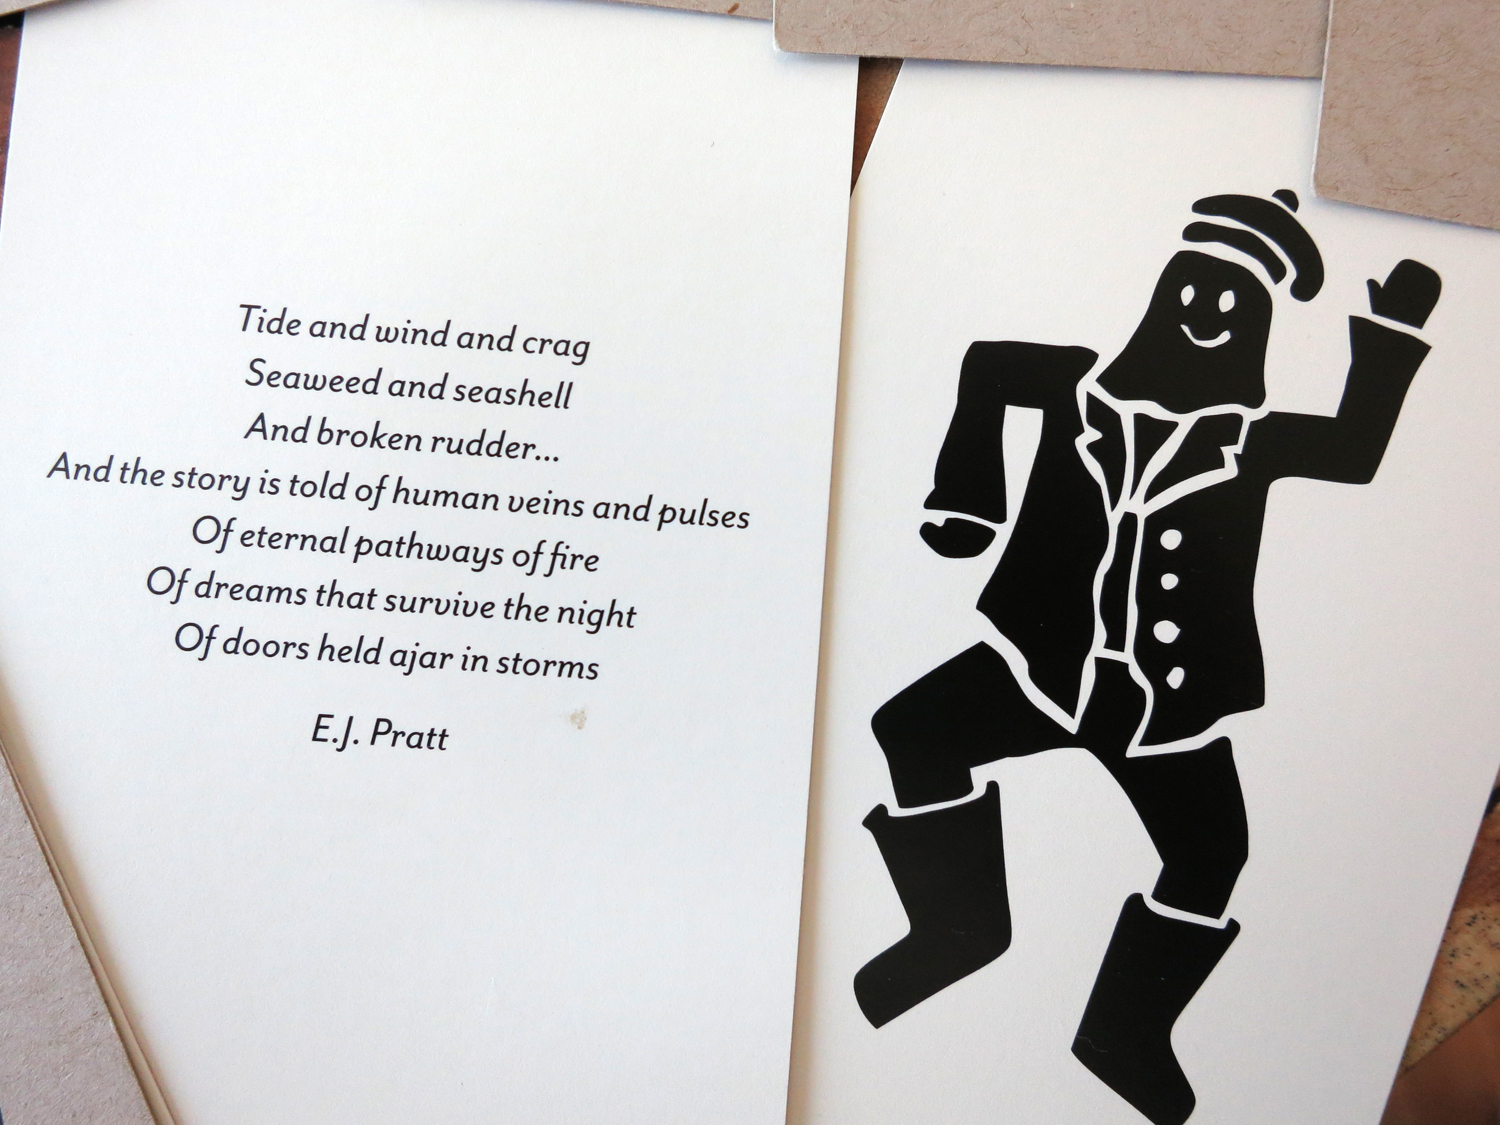 Tide and wind and crag
Seaweed and seashell
And broken rudder...
And the story is told of human veins and pulses
Of eternal pathways of fire
Of dreams that survive the night
Of doors held ajar in storms
E.J. Pratt